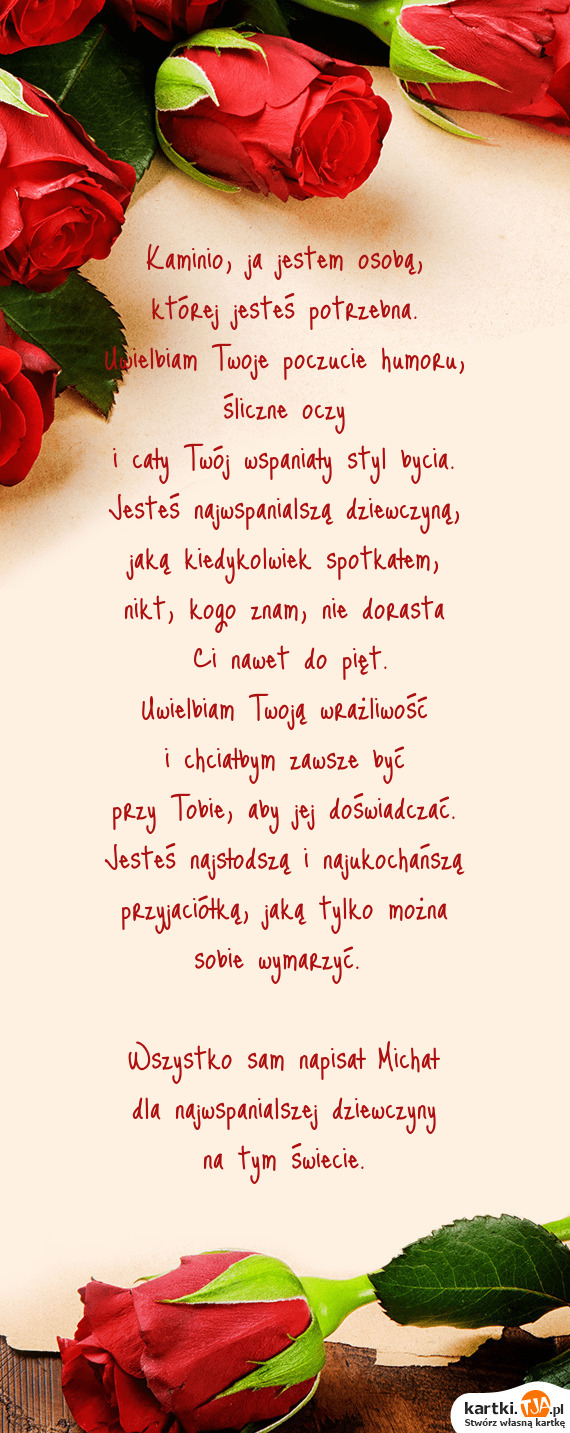 Kaminio, ja jestem osobą,
której jesteś potrzebna.
Uwielbiam Twoje poczucie humoru,
śliczne oczy
i cały Twój wspaniały styl bycia.
Jesteś najwspanialszą dziewczyną,
jaką kiedykolwiek spotkałem,
nikt, kogo znam, nie dorasta
Ci nawet do pięt.
Uwielbiam Twoją wrażliwość
i chciałbym zawsze być
przy Tobie, aby jej doświadczać.
Jesteś najsłodszą i najukochańszą
przyjaciółką, jaką tylko można
sobie wymarzyć.
Wszystko sam napisał Michał
dla najwspanialszej dziewczyny
na tym świecie.
kartki.TJA.pl
Stwórz własną kartkę